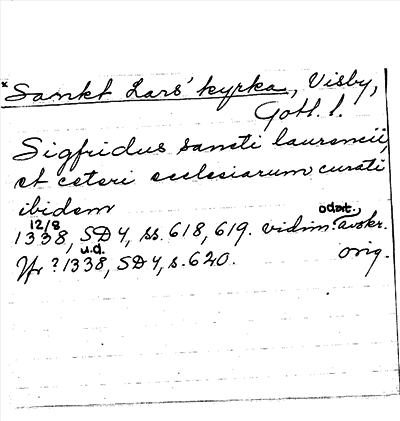 *Sankt Lars' kyrka, Visby,
Gotl. l.
Sigfridus sancti laurencii,
et ceteri ecclesiarum curati
ibidem
12/8 odat.
1338, SD 4, ss. 618, 619. vidim. avskr.
u.d.
Yfr ? 1338, SD 4, s. 620. orig.